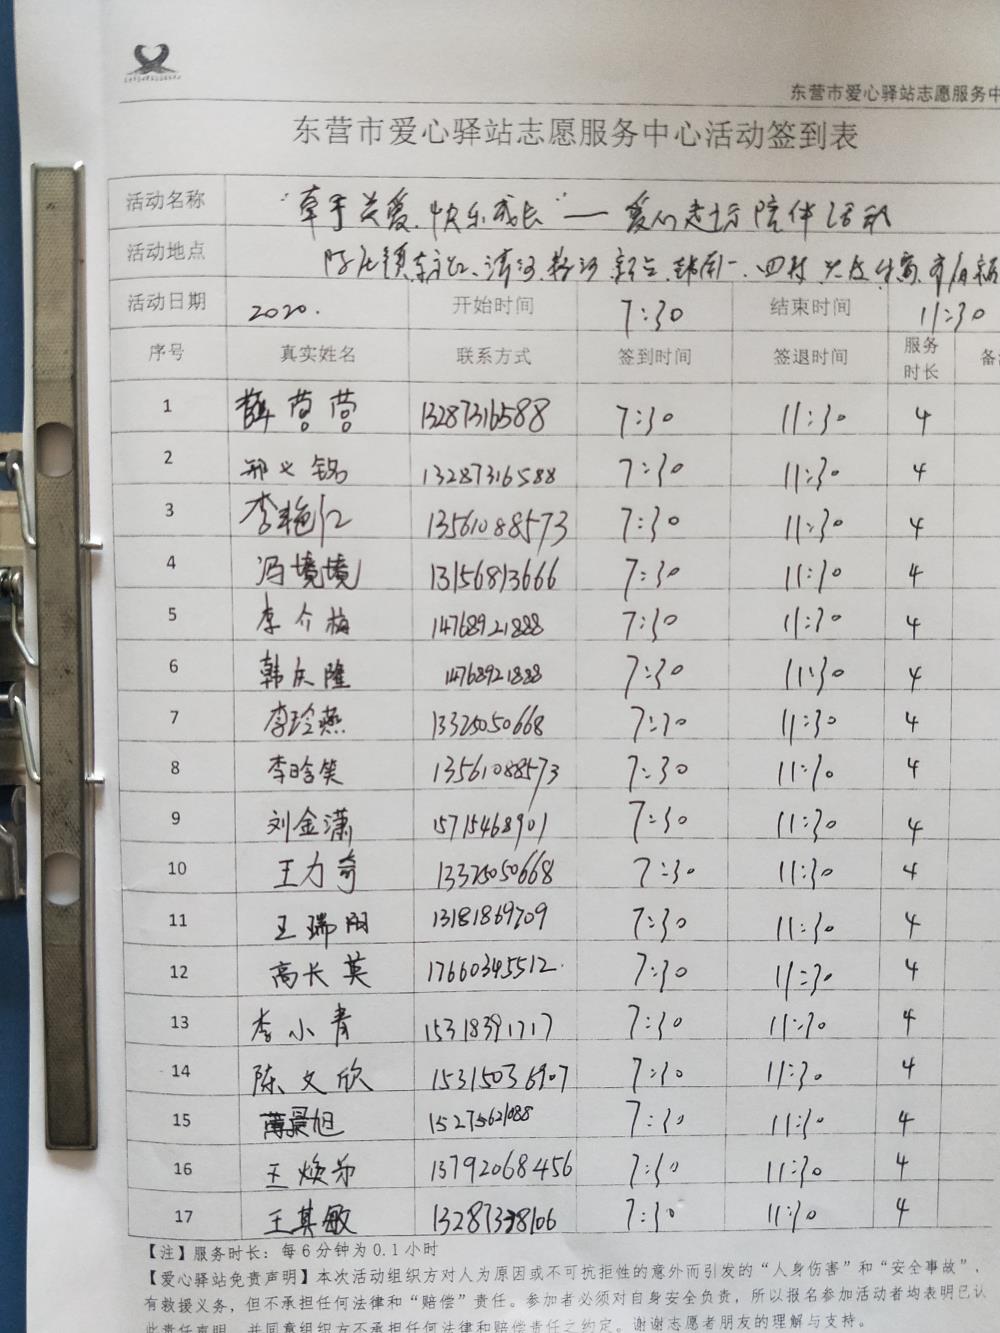 东营市爱心驿站志愿服务中
东营市爱心驿站志愿服务中心活动签到表
活动名称 "牵手关爱,快乐成长"——爱心志愿陪伴活动
活动地点
活动日期 2020. 开始时间 7:30 结束时间 11:30
序号 真实姓名 联系方式 签到时间 签退时间 服务时长 备
1 薛营营 13287316588 7:30 11:30 4
2 邢义铭 13287316588 7:30 11:30 4
3 李艳红 13561088573 7:30 11:30 4
4 冯境境 13156813666 7:30 11:30 4
5 李介梅 14768921888 7:30 11:30 4
6 韩庆隆 14768921888 7:30 11:30 4
7 李玲燕 13325050668 7:30 11:30 4
8 李晗笑 13561088573 7:30 11:30 4
9 刘金潇 15715468901 7:30 11:30 4
10 王力奇 13325050668 7:30 11:30 4
11 王瑞 13181869709 7:30 11:30 4
12 高长英 17660345512 7:30 11:30 4
13 李小青 15318391717 7:30 11:30 4
14 陈文欣 15315036907 7:30 11:30 4
15 薄景旭 15275621088 7:30 11:30 4
16 王焕 13792068456 7:30 11:30 4
17 王其敏 7:30 11:30 4
【注】服务时长：每6分钟为0.1小时
【爱心驿站免责声明】本次活动组织方对人为原因或不可抗拒性的意外而引发的“人身伤害”和“安全事故”，
有救援义务，但不承担任何法律和“赔偿”责任。参加者必须对自身安全负责，所以报名参加活动者均表明已认
此责任声明，并同意组织方不承担任何法律和赔偿责任之约定。谢谢志愿者朋友的理解与支持。